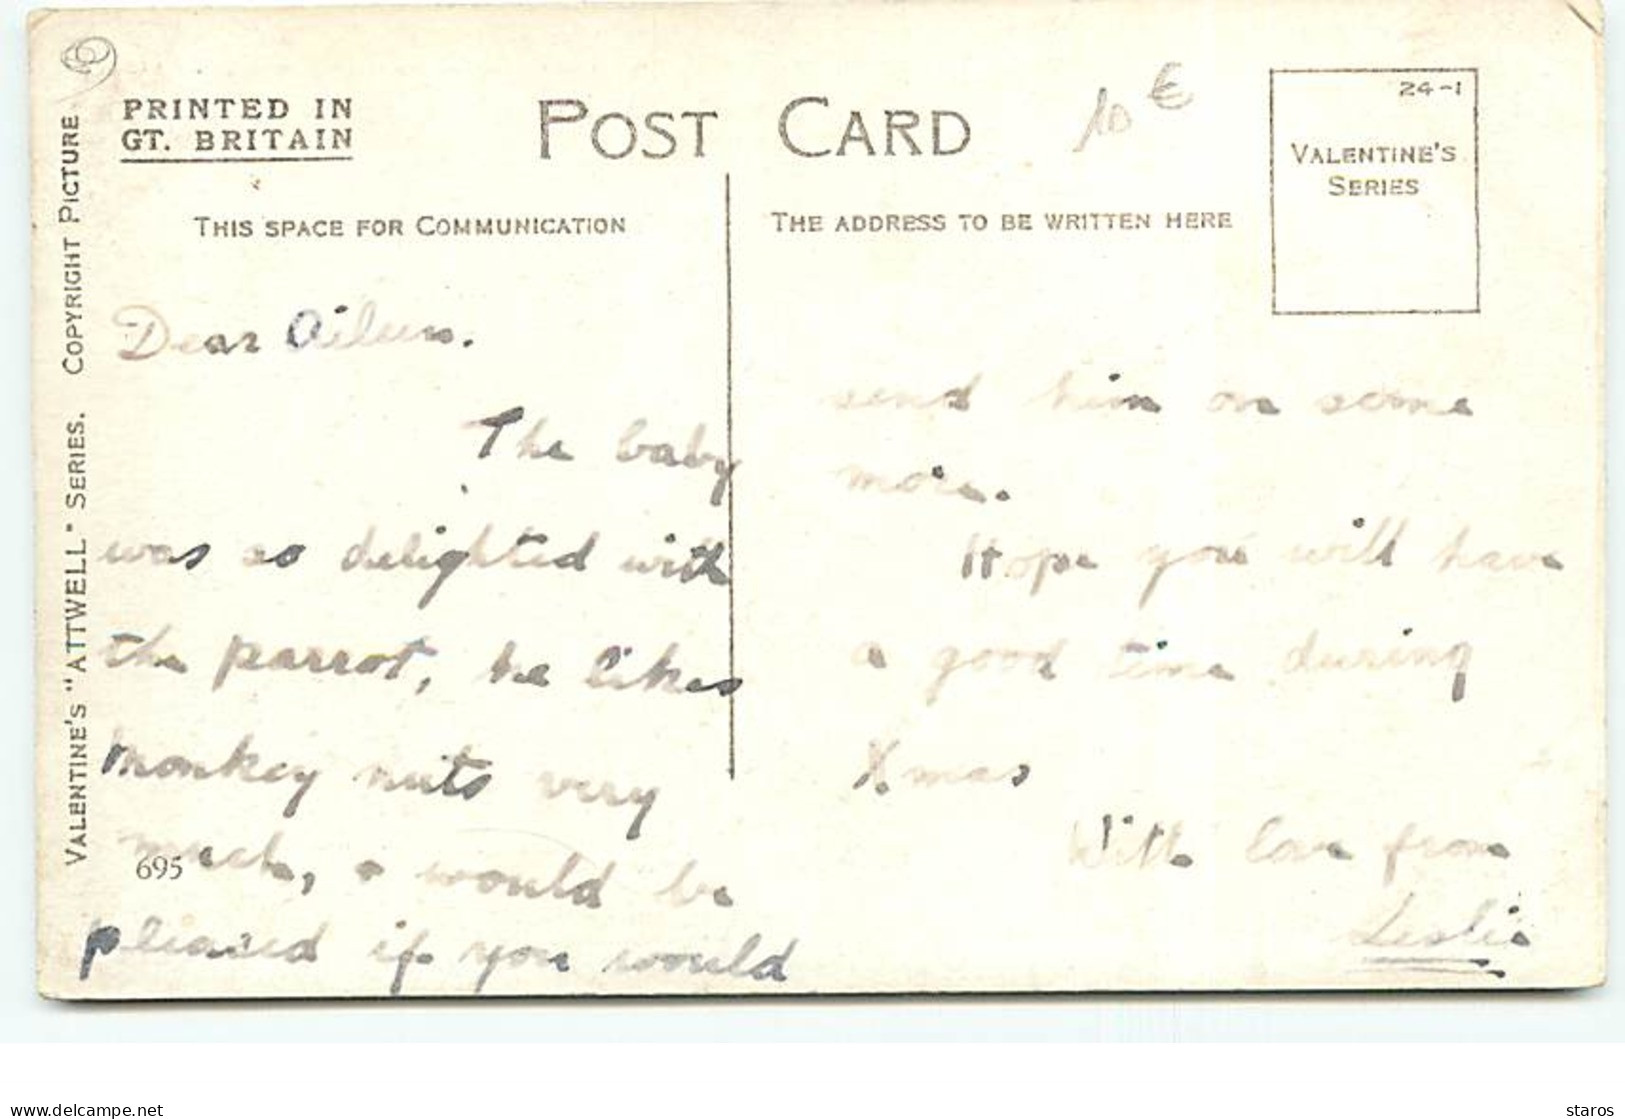 PRINTED IN
GT. BRITAIN
POST CARD
10 €
24-1
VALENTINE'S
SERIES
THIS SPACE FOR COMMUNICATION
THE ADDRESS TO BE WRITTEN HERE
VALENTINE'S "ATTWELL" SERIES. COPYRIGHT PICTURE
Dear Aileen.
The baby
was so delighted with
the parrot, he likes
monkey nuts very
much, & would be
pleased if you would
695
send him on some
more.
Hope you will have
a good time during
Xmas
With love from
Leslie
www.delcampe.net
staros